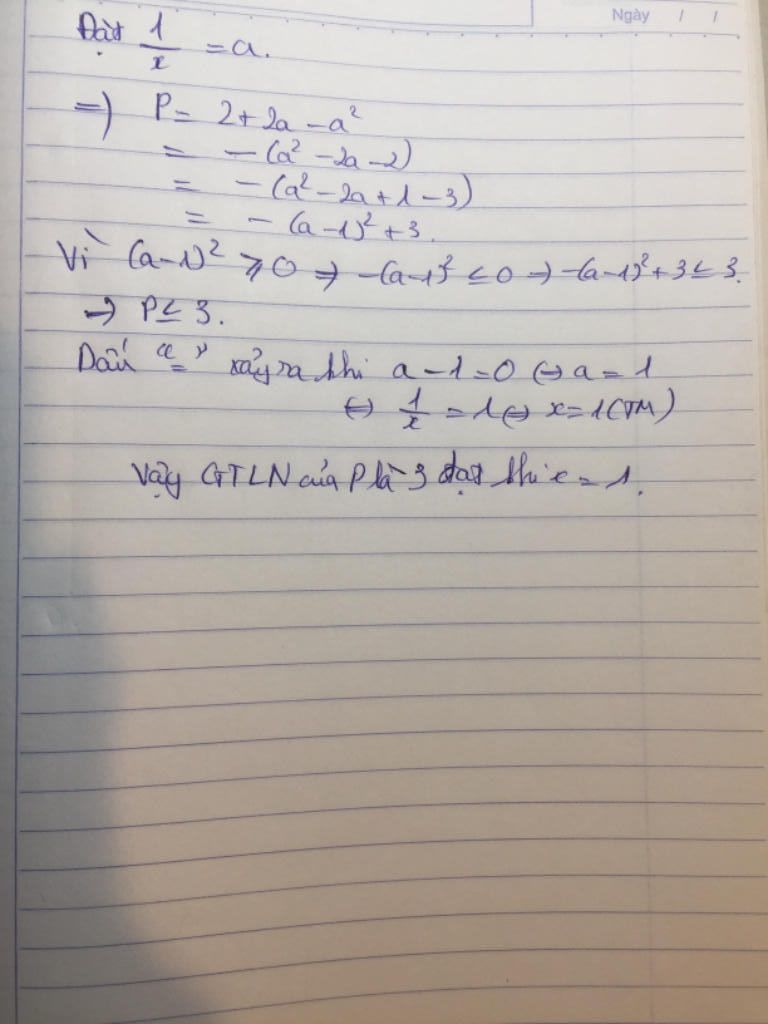 Ngày / /
Đặt 1/x = a.
=) P = 2 + 2a - a²
= - (a² - 2a - 2)
= - (a² - 2a + 1 - 3)
= - (a - 1)² + 3.
Vì (a-1)² ⩾ 0 => -(a-1)² ≤ 0 => -(a-1)² + 3 ≤ 3.
=> P ≤ 3.
Dấu "=" xảy ra khi a - 1 = 0 (=) a = 1
(=) 1/x = 1 (=) x = 1 (TM)
Vậy GTLN của P là 3 đạt khi x = 1.